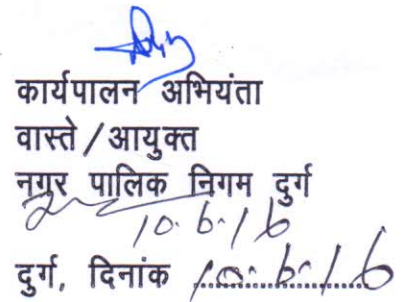 कार्यपालन अभियंता
वास्ते / आयुक्त
नगर पालिक निगम दुर्ग
10.6.16
दुर्ग, दिनांक 10.6.16